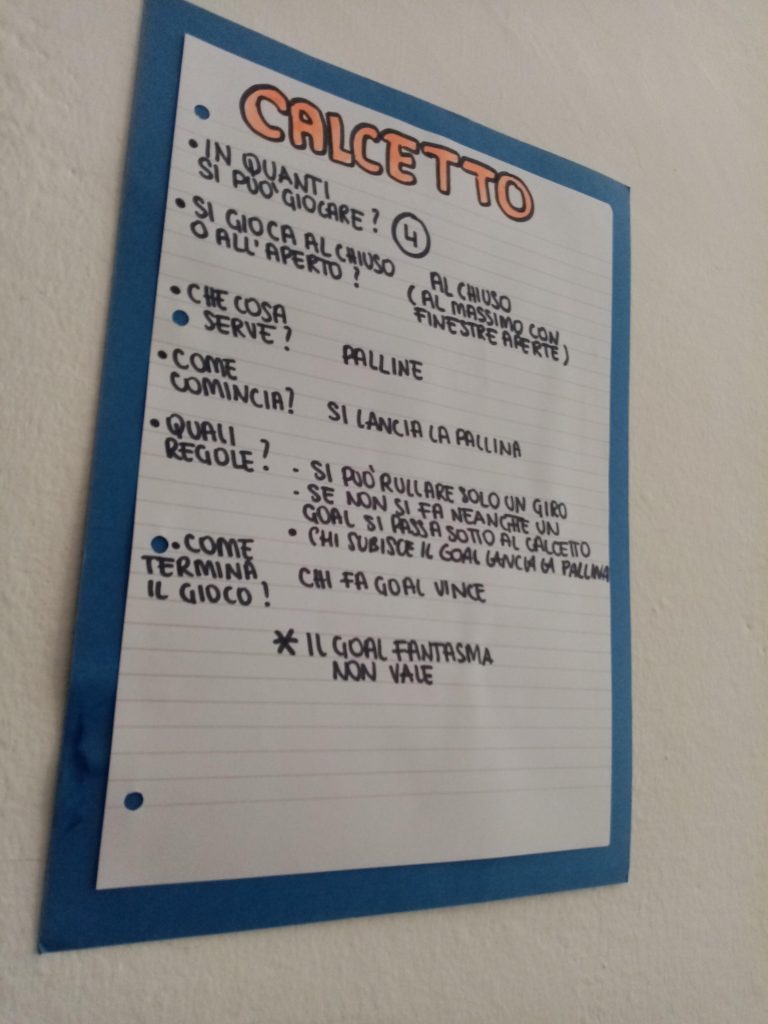 CALCETTO
• IN QUANTI
SI PUÒ GIOCARE? 4
• SI GIOCA AL CHIUSO
O ALL'APERTO?
AL CHIUSO
(AL MASSIMO CON
FINESTRE APERTE)
• CHE COSA
SERVE?
PALLINE
• COME
COMINCIA?
SI LANCIA LA PALLINA
• QUALI
REGOLE?
- SI PUÒ RULLARE SOLO UN GIRO
- SE NON SI FA NEANCHE UN
GOAL SI PASSA SOTTO AL CALCETTO
• CHI SUBISCE IL GOAL LANCIA LA PALLINA
• COME
TERMINA
IL GIOCO!
CHI FA GOAL VINCE
* IL GOAL FANTASMA
NON VALE